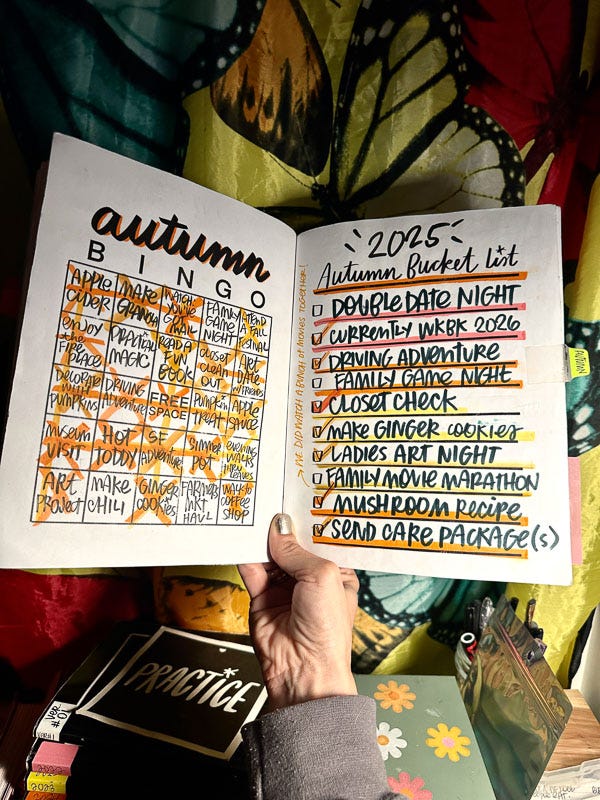 autumn
BINGO
Apple cider
Make granola
Watch You've Got Mail
Family Game Night
Attend a Fall Festival
enjoy the fire place
Practical Magic
Read a Fun Book
closet clean out
Art Date w/ friends
Decorate with pumpkins
Driving Adventure
FREE SPACE
Pumpkin treat
Apple sauce
museum visit
Hot toddy
SF Adventure
simmer pot
evening walks
Art project
make chili
Ginger cookies
Farmers mkt haul
walk to coffee shop
→ we did watch a bunch of movies together!
2025
Autumn Bucket list
Double Date Night
Currently WKBK 2026
Driving Adventure
Family Game Night
Closet Check
Make Ginger cookies
Ladies Art Night
Family Movie Marathon
Mushroom Recipe
Send Care Package(s)
AUTUMN
PRACTICE